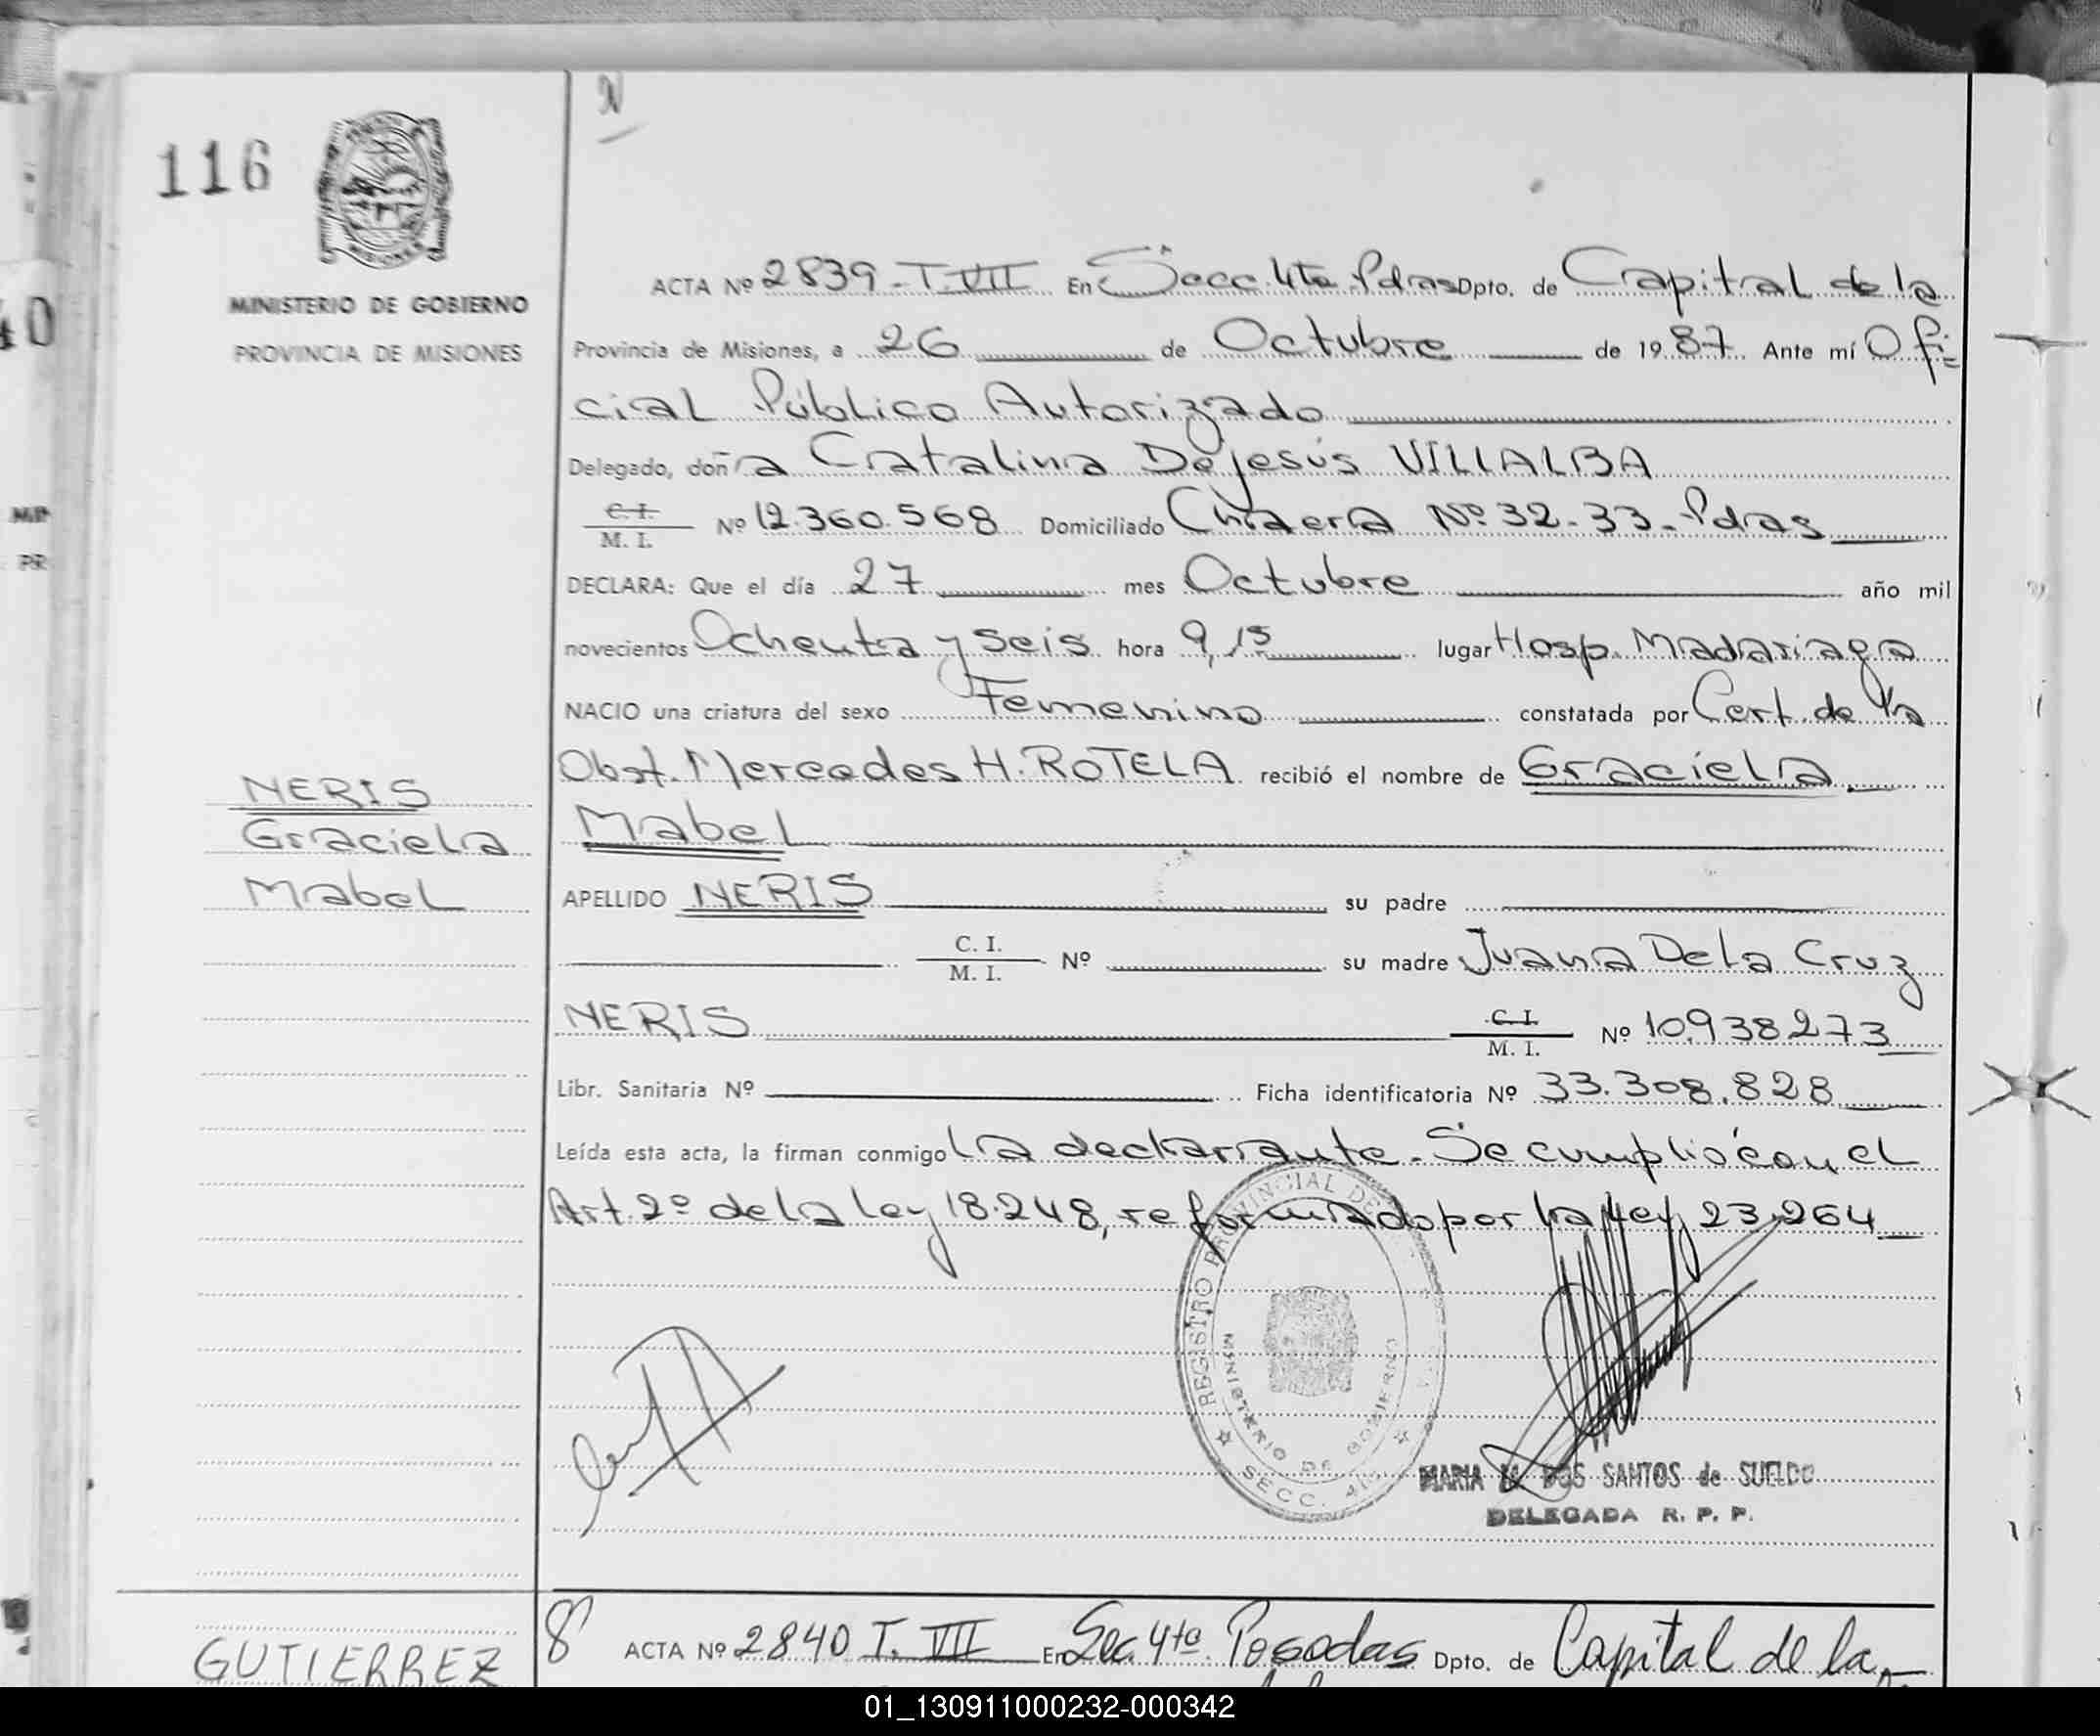 116
MINISTERIO DE GOBIERNO
PROVINCIA DE MISIONES
ACTA Nº 2839 - T. VII En Secc. 4ta Pdras Dpto. de Capital de la
Provincia de Misiones, a 26 de Octubre de 1987 Ante mí Ofi-
cial Público Autorizado
Delegado, doña Catalina De Jesús VILLALBA
C. I.
M. I. Nº 12.360.568 Domiciliado Chacra Nº 32-33 - Pdras
DECLARA: Que el día 27 mes Octubre año mil
novecientos Ochenta y seis hora 9,15 lugar Hosp. Madariaga
NACIO una criatura del sexo Femenino constatada por Cert. de la
Obst. Mercedes H. ROTELA recibió el nombre de Graciela
Mabel
NERIS
Graciela
Mabel
APELLIDO NERIS su padre
C. I.
M. I. Nº su madre Juana De la Cruz
NERIS C. I.
M. I. Nº 10.938273
Libr. Sanitaria Nº Ficha identificatoria Nº 33.308.828
Leída esta acta, la firman conmigo la declarante. Se cumplió con el
Art. 2º de la ley 18.248, reformado por la ley 23.264
REGISTRO PROVINCIAL DE
MINISTERIO DE GOBIERNO
SECC. 4
MARIA DOS SANTOS de SUELDO
DELEGADA R. P. P.
GUTIERREZ
8 ACTA Nº 2840 T. VII En Sec. 4ta. Posadas Dpto. de Capital de la
01_130911000232-000342